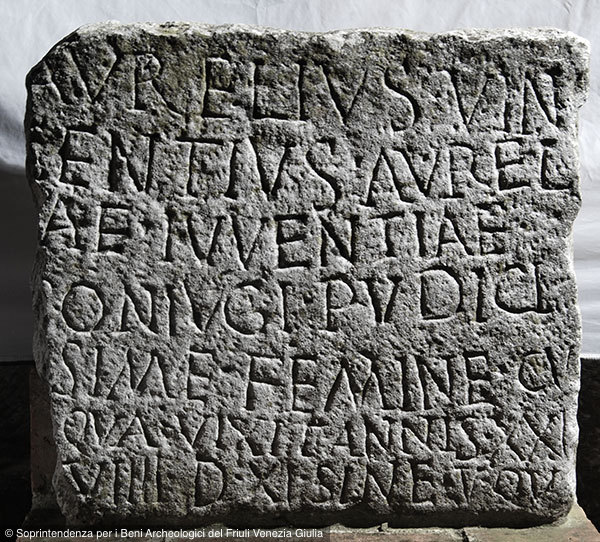 AVRELIVS VIN
CENTIVS AVREL
AE IVVENTIAE
CONIVGI PVDICI
SIME FEMINE CV
QVA VIXIT ANNIS XXI
VIIII D XI SINE V QV
© Soprintendenza per i Beni Archeologici del Friuli Venezia Giulia